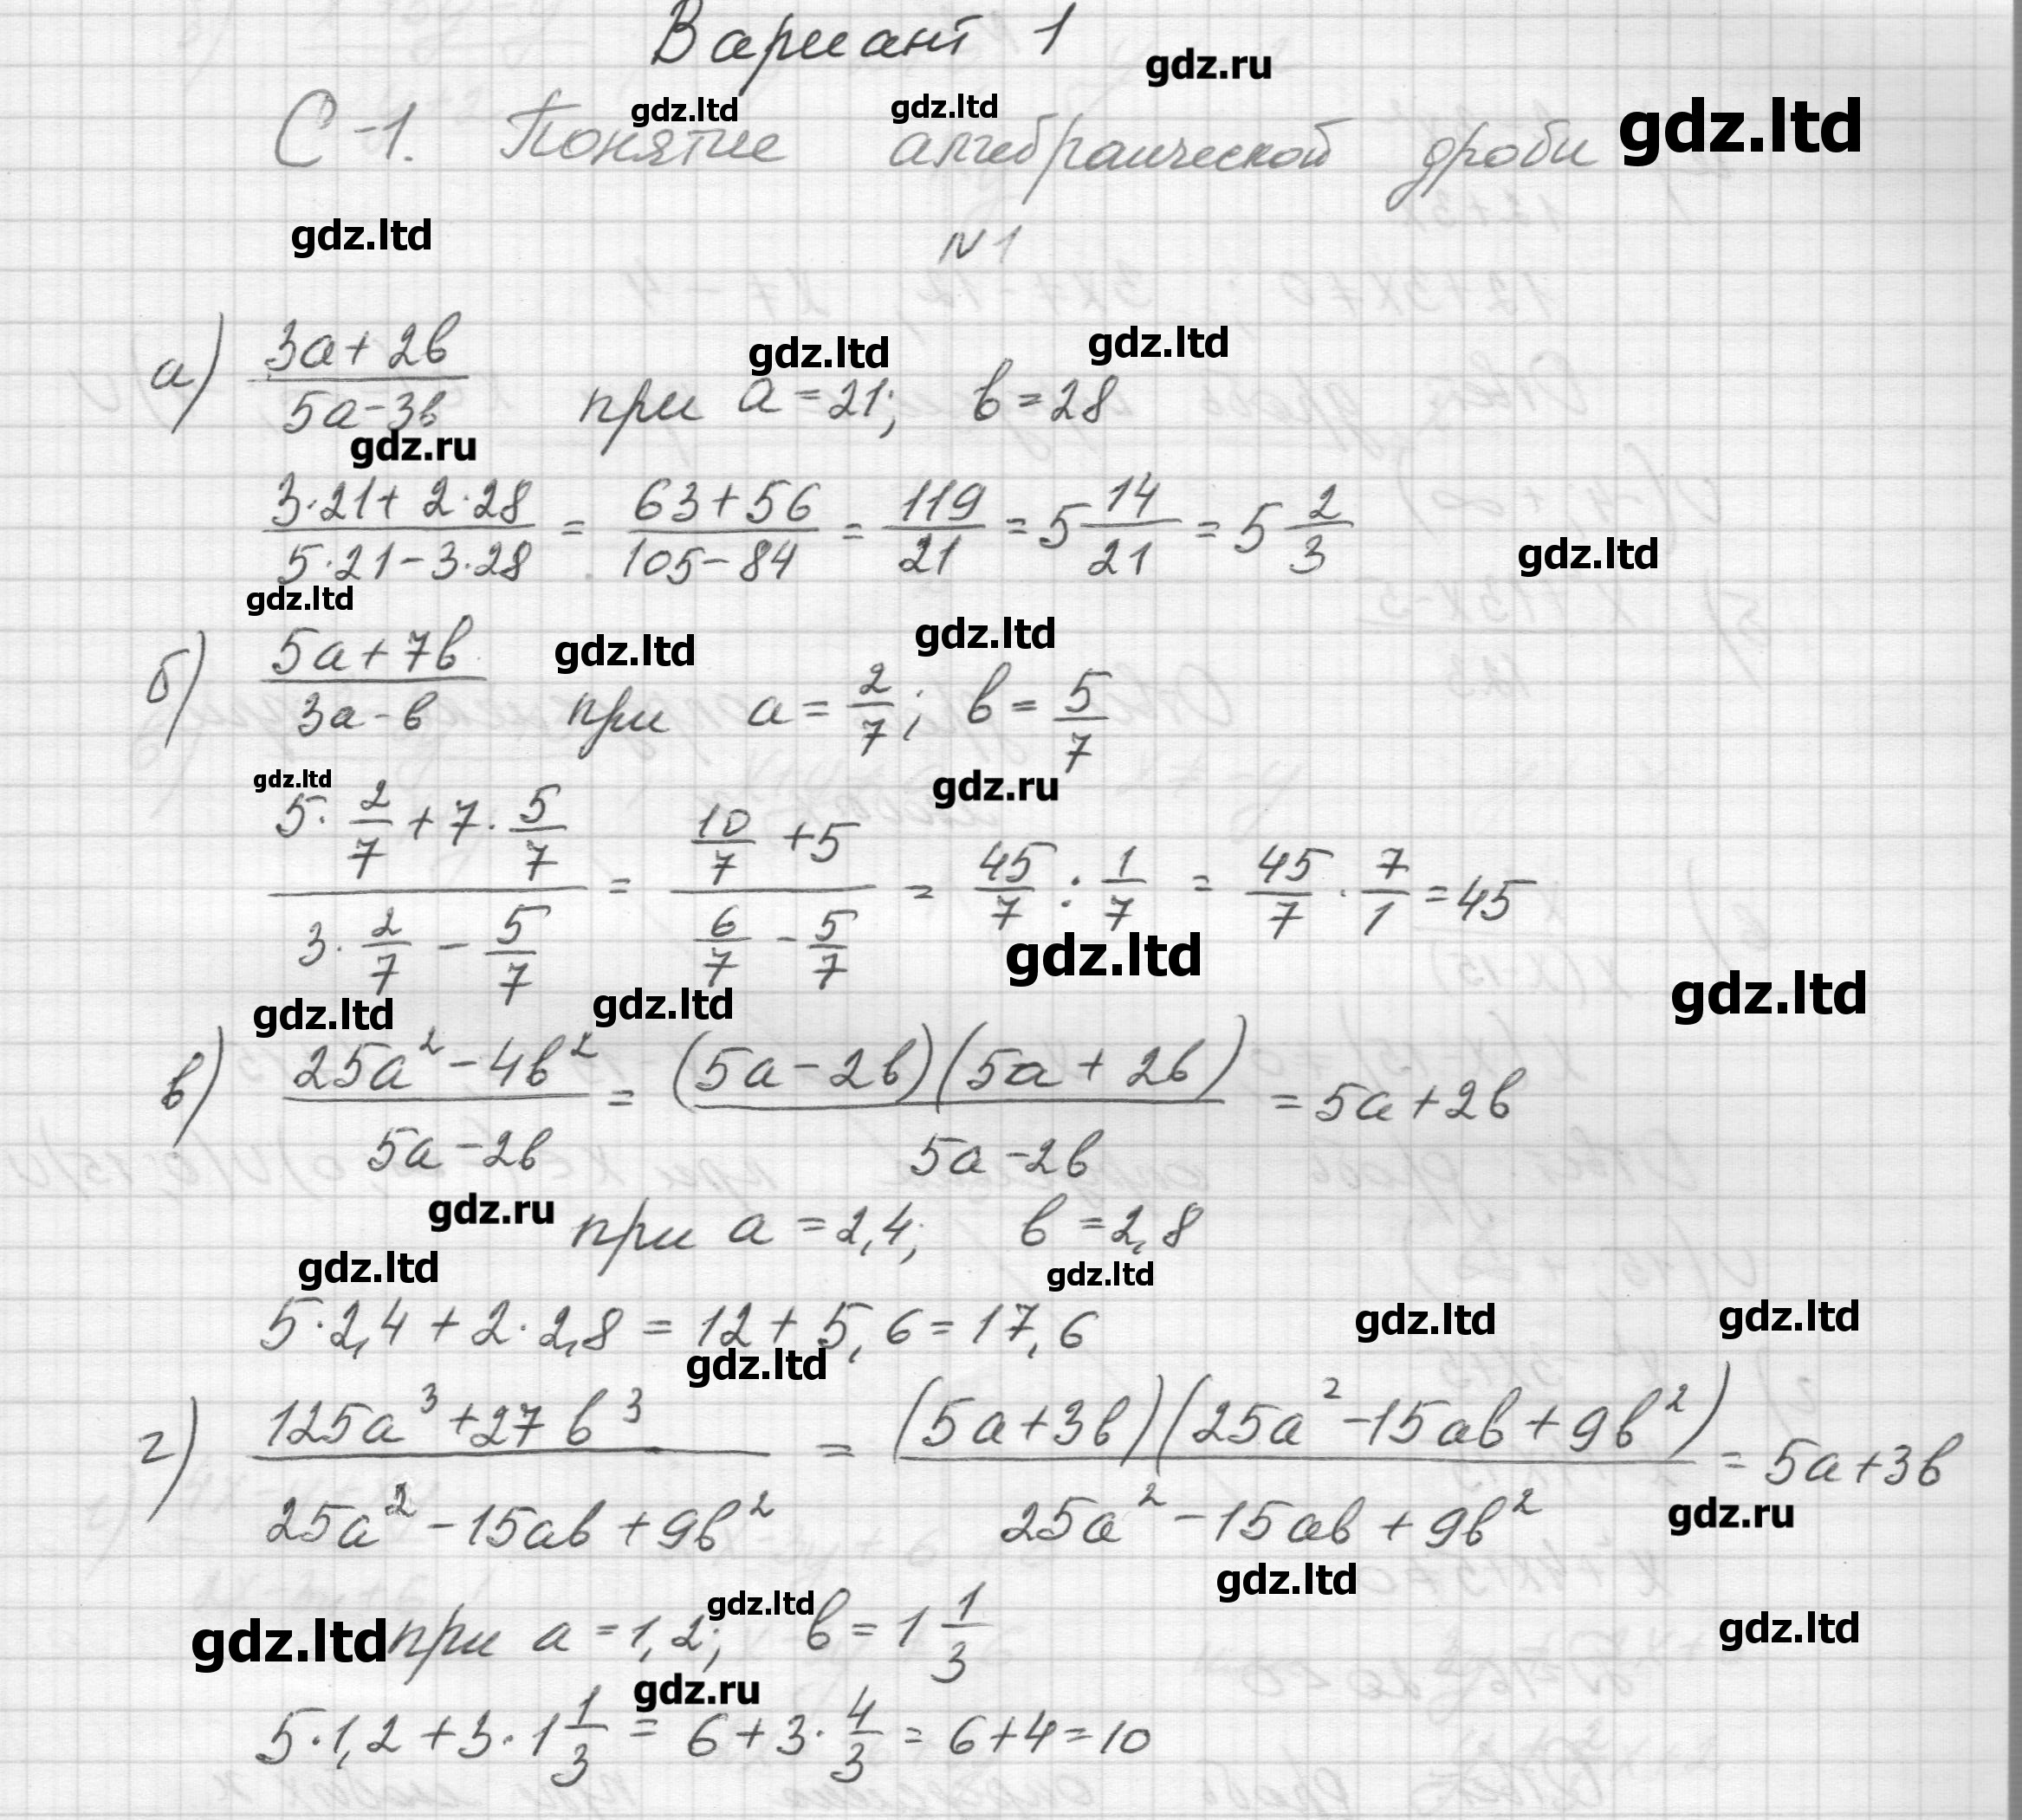 Вариант 1
gdz.ru
С-1. Понятие алгебраической дроби
gdz.ltd gdz.ltd gdz.ltd
gdz.ltd
N1
а) (3a+2b)/(5a-3b) при a=21; b=28
gdz.ltd gdz.ltd
gdz.ru
(3·21+2·28)/(5·21-3·28) = (63+56)/(105-84) = 119/21 = 5 14/21 = 5 2/3
gdz.ltd
gdz.ltd
б) (5a+7b)/(3a-b) при a=2/7; b=5/7
gdz.ltd gdz.ltd
gdz.ltd gdz.ru
(5·2/7+7·5/7)/(3·2/7-5/7) = (10/7+5)/(6/7-5/7) = 45/7 : 1/7 = 45/7 · 7/1 = 45
gdz.ltd gdz.ltd
gdz.ltd gdz.ltd
в) (25a²-4b²)/(5a-2b) = (5a-2b)(5a+2b)/(5a-2b) = 5a+2b
gdz.ru при a=2,4; b=2,8
gdz.ltd gdz.ltd
5·2,4+2·2,8=12+5,6=17,6
gdz.ltd gdz.ltd
gdz.ltd
г) (125a³+27b³)/(25a²-15ab+9b²) = (5a+3b)(25a²-15ab+9b²)/(25a²-15ab+9b²) = 5a+3b
gdz.ru
gdz.ltd
gdz.ltd при a=1,2; b=1 1/3
gdz.ltd gdz.ltd
gdz.ru
5·1,2+3·1 1/3 = 6+3·4/3 = 6+4=10